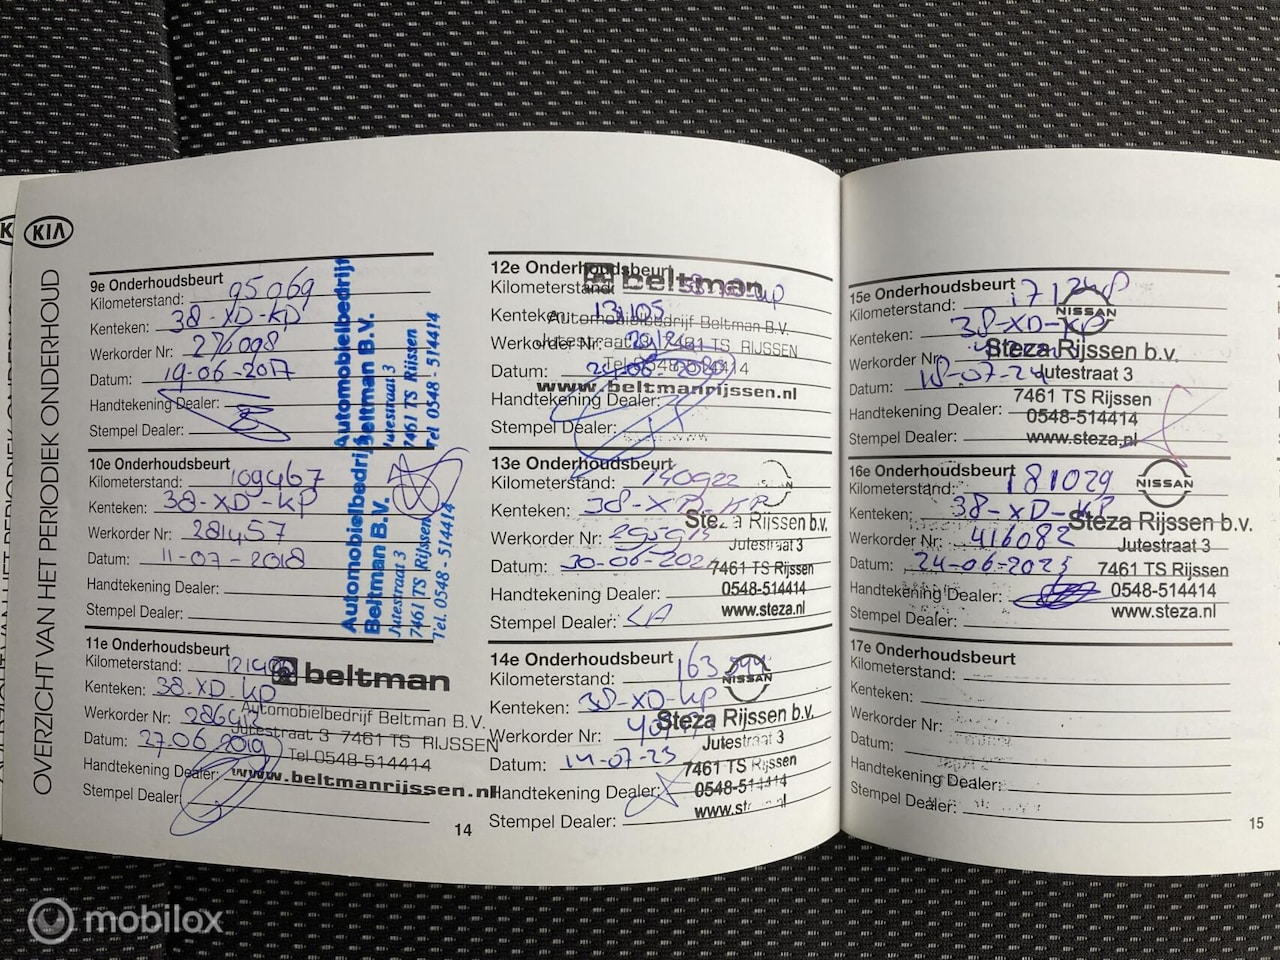 KIA
OVERZICHT VAN HET PERIODIEK ONDERHOUD
9e Onderhoudsbeurt
Kilometerstand: 95069
Kenteken: 38-XD-KP
Werkorder Nr: 276098
Datum: 19-06-2017
Handtekening Dealer:
Stempel Dealer:
Automobielbedrijf
Beltman B.V.
Jutestraat 3
7461 TS Rijssen
Tel 0548 - 514414
10e Onderhoudsbeurt
Kilometerstand: 109467
Kenteken: 38-XD-KP
Werkorder Nr: 281457
Datum: 11-07-2018
Handtekening Dealer:
Stempel Dealer:
Automobielbedrijf
Beltman B.V.
Jutestraat 3
7461 TS Rijssen
Tel. 0548 - 514414
11e Onderhoudsbeurt
Kilometerstand:
Kenteken: 38-XD-KP
Werkorder Nr:
Datum: 27-06-2019
Handtekening Dealer:
Stempel Dealer:
beltman
Automobielbedrijf Beltman B.V.
Jutestraat 3 7461 TS RIJSSEN
Tel 0548-514414
www.beltmanrijssen.nl
14
12e Onderhoudsbeurt
Kilometerstand:
Kenteken:
Werkorder Nr:
Datum:
Handtekening Dealer:
Stempel Dealer:
beltman
Automobielbedrijf Beltman B.V.
Jutestraat 3 7461 TS RIJSSEN
Tel 0548-514414
www.beltmanrijssen.nl
13e Onderhoudsbeurt
Kilometerstand: 140922
Kenteken: 38-XD-KP
Werkorder Nr:
Datum:
Handtekening Dealer:
Stempel Dealer:
Steza Rijssen b.v.
Jutestraat 3
7461 TS Rijssen
0548-514414
www.steza.nl
14e Onderhoudsbeurt
Kilometerstand:
Kenteken: 38-XD-KP
Werkorder Nr:
Datum: 14-07-23
Handtekening Dealer:
Stempel Dealer:
NISSAN
Steza Rijssen b.v.
Jutestraat 3
7461 TS Rijssen
0548-514414
15e Onderhoudsbeurt
Kilometerstand:
Kenteken: 38-XD-KP
Werkorder Nr:
Datum: 18-07-24
Handtekening Dealer:
Stempel Dealer:
NISSAN
Steza Rijssen b.v.
Jutestraat 3
7461 TS Rijssen
0548-514414
www.steza.nl
16e Onderhoudsbeurt
Kilometerstand: 181029
Kenteken: 38-XD-KP
Werkorder Nr: 416082
Datum: 24-06-2025
Handtekening Dealer:
Stempel Dealer:
NISSAN
Steza Rijssen b.v.
Jutestraat 3
7461 TS Rijssen
0548-514414
www.steza.nl
17e Onderhoudsbeurt
Kilometerstand:
Kenteken:
Werkorder Nr:
Datum:
Handtekening Dealer:
Stempel Dealer:
15
mobilox